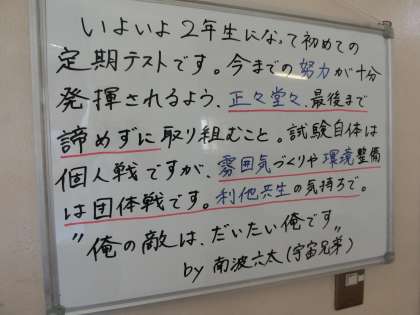 いよいよ2年生になって初めての
定期テストです。今までの努力が十分
発揮されるよう、正々堂々、最後まで
諦めずに取り組むこと。試験自体は
個人戦ですが、雰囲気づくりや環境整備
は団体戦です。利他共生の気持ちで。
"俺の敵は、だいたい俺です"
by 南波六太(宇宙兄弟)